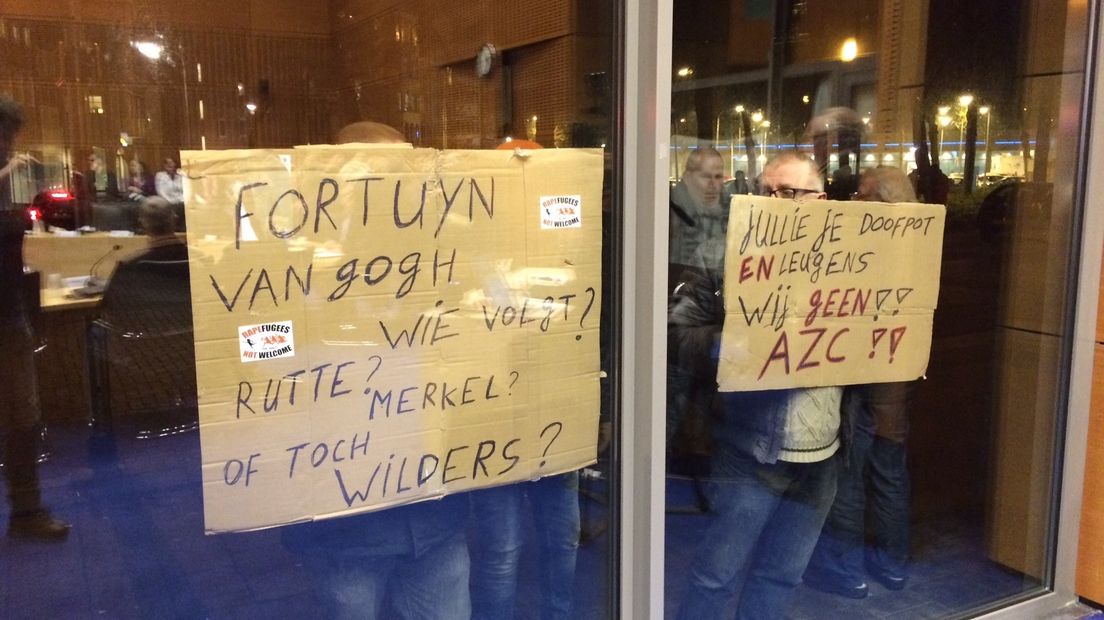 FORTUYN
VAN gogH
WIE VOLGT?
RUTTE? MERKEL?
OF TOCH WILDERS?
RAPEFUGEES
NOT WELCOME
RAPEFUGEES
NOT WELCOME
JULLIE JE DOOFPOT
EN LEUGENS
WIJ GEEN!!
AZC !!